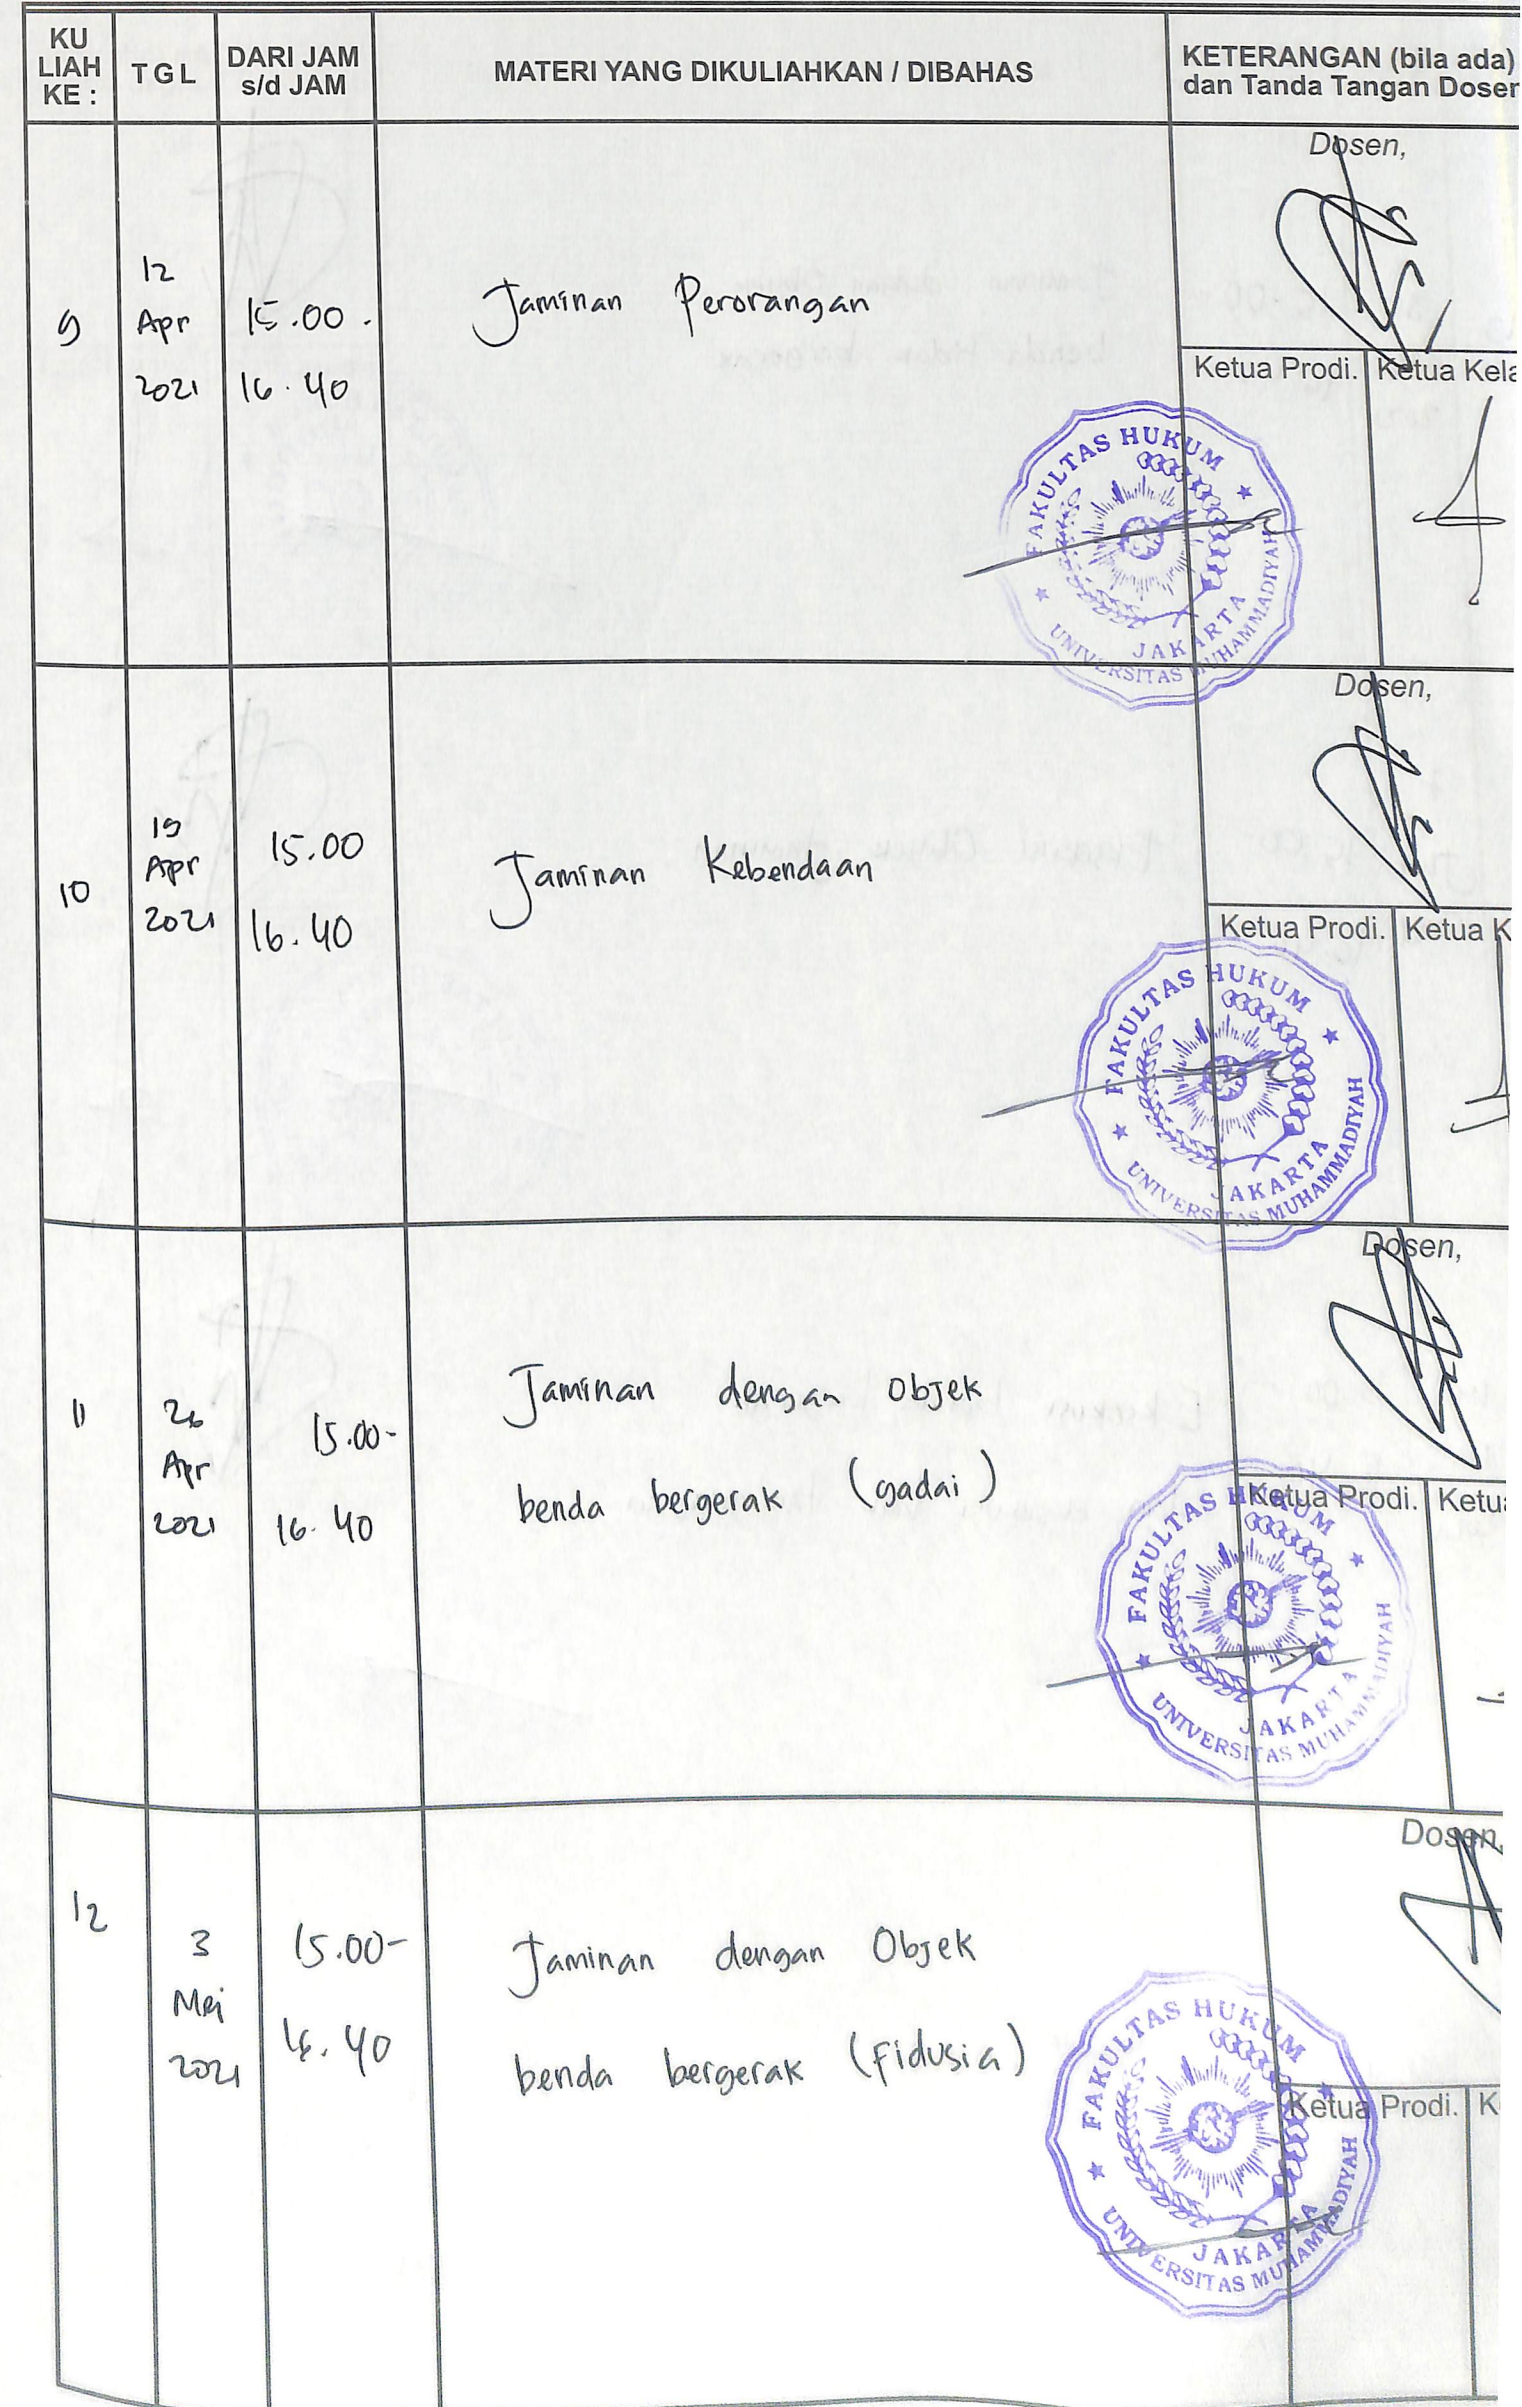 KU LIAH KE :
TGL
DARI JAM s/d JAM
MATERI YANG DIKULIAHKAN / DIBAHAS
KETERANGAN (bila ada)
dan Tanda Tangan Dosen
Dosen,
9
12
Apr
2021
15.00 -
16.40
Jaminan Perorangan
Ketua Prodi.
Ketua Kela
FAKULTAS HUKUM
JAKARTA
UNIVERSITAS MUHAMMADIYAH
Dosen,
10
19
Apr
2021
15.00
16.40
Jaminan Kebendaan
Ketua Prodi.
Ketua K
FAKULTAS HUKUM
JAKARTA
UNIVERSITAS MUHAMMADIYAH
Dosen,
11
26
Apr
2021
15.00-
16.40
Jaminan dengan Objek
benda bergerak (gadai)
Ketua Prodi.
Ketua
FAKULTAS HUKUM
JAKARTA
UNIVERSITAS MUHAMMADIYAH
Dosen,
12
3
Mei
2021
15.00-
16.40
Jaminan dengan Objek
benda bergerak (Fidusia)
Ketua Prodi.
K
FAKULTAS HUKUM
JAKARTA
UNIVERSITAS MUHAMMADIYAH